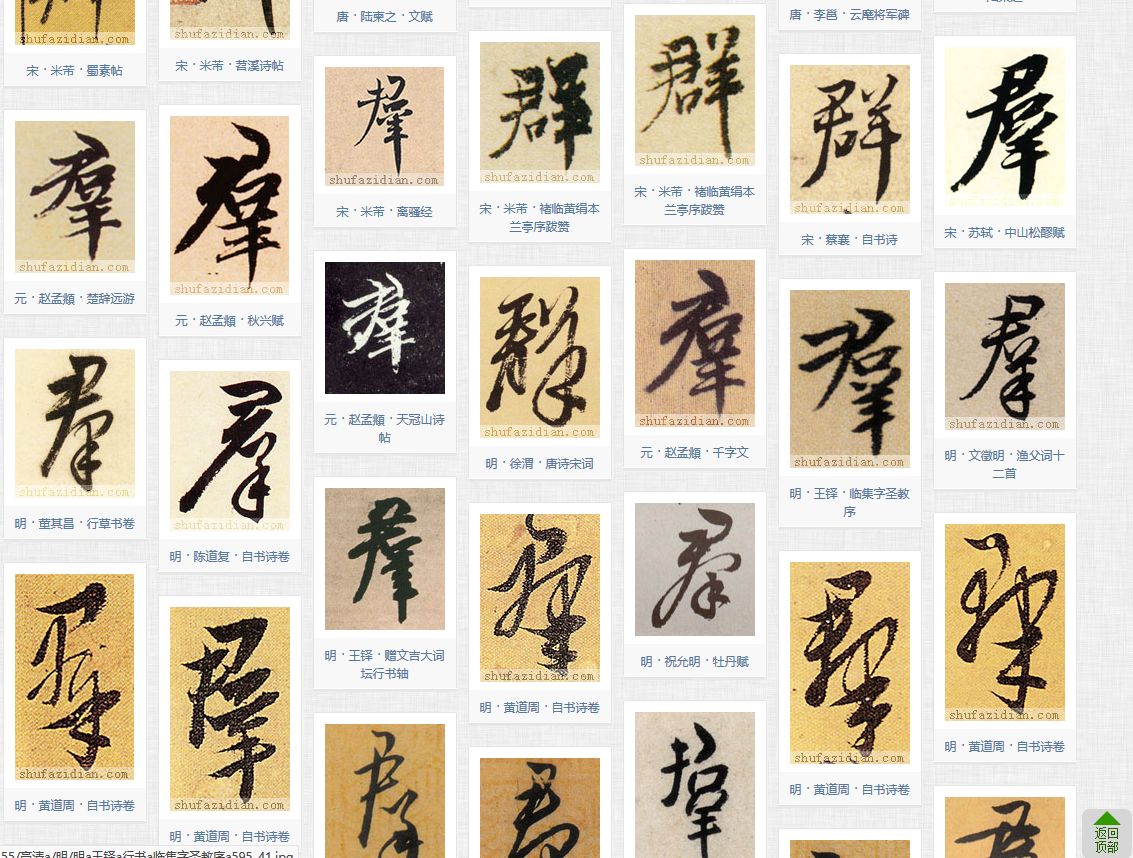 shufazidian.com
宋・米芾・蜀素帖
群
shufazidian.com
元・赵孟頫・楚辞远游
群
shufazidian.com
明・董其昌・行草书卷
群
shufazidian.com
明・黄道周・自书诗卷
shufazidian.com
宋・米芾・苕溪诗帖
群
shufazidian.com
元・赵孟頫・秋兴赋
群
shufazidian.com
明・陈道复・自书诗卷
群
shufazidian.com
明・黄道周・自书诗卷
唐・陆柬之・文赋
群
shufazidian.com
宋・米芾・离骚经
群
元・赵孟頫・天冠山诗
帖
群
明・王铎・赠文吉大词
坛行书轴
群
群
shufazidian.com
宋・米芾・褚临黄绢本
兰亭序跋赞
群
shufazidian.com
明・徐渭・唐诗宋词
群
shufazidian.com
明・黄道周・自书诗卷
群
shufazidian.com
宋・米芾・褚临黄绢本
兰亭序跋赞
群
shufazidian.com
元・赵孟頫・千字文
群
明・祝允明・牡丹赋
群
唐・李邕・云麾将军碑
群
shufazidian.com
宋・蔡襄・自书诗
群
shufazidian.com
明・王铎・临集字圣教
序
群
shufazidian.com
明・黄道周・自书诗卷
群
宋・苏轼・中山松醪赋
群
shufazidian.com
明・文徵明・渔父词十
二首
群
shufazidian.com
明・黄道周・自书诗卷
返回
顶部